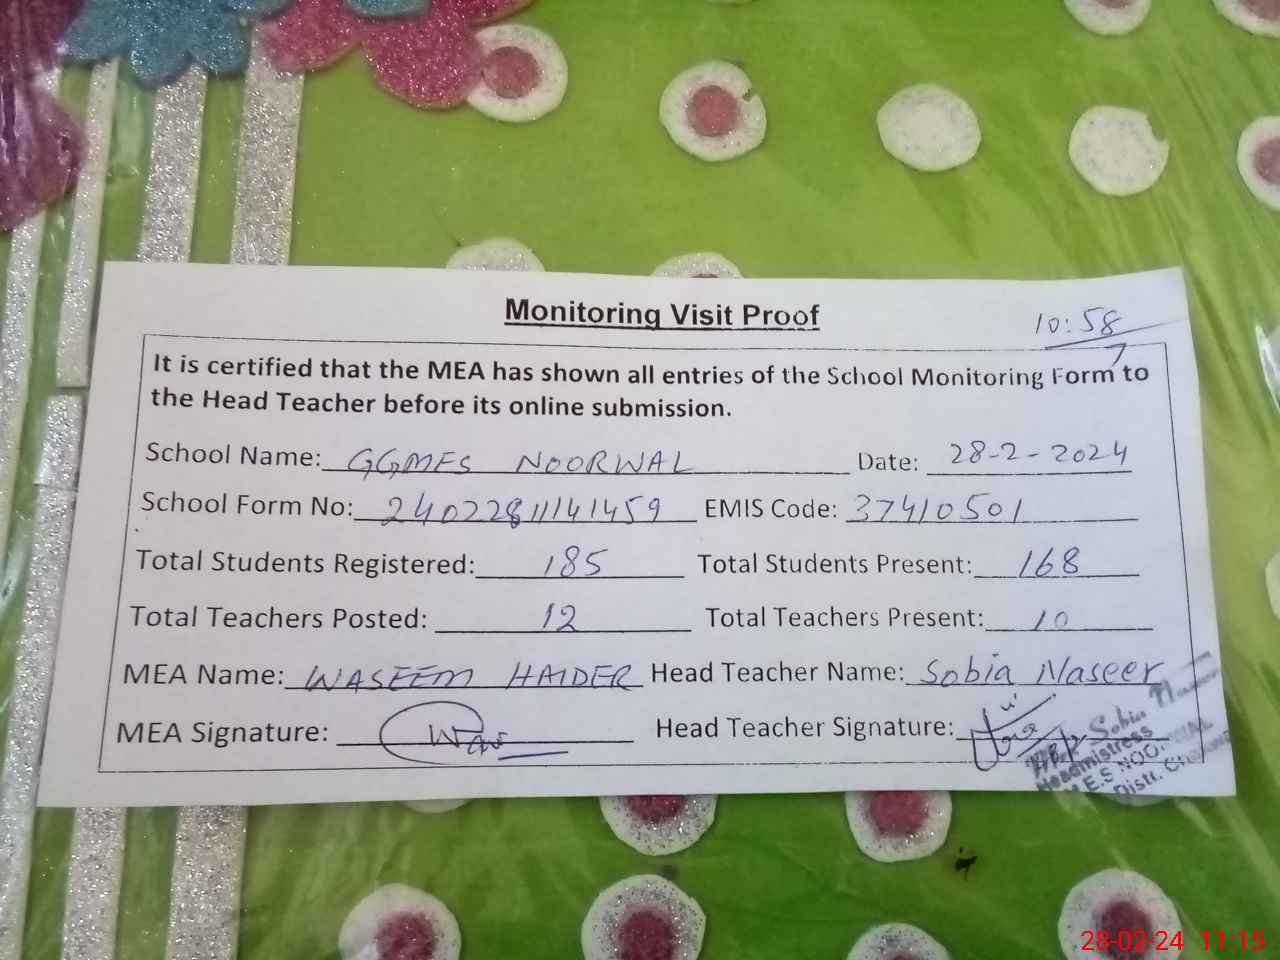 Monitoring Visit Proof
10:58
It is certified that the MEA has shown all entries of the School Monitoring Form to
the Head Teacher before its online submission.
School Name: GGMES NOORWAL Date: 28-2-2024
School Form No: 24022811141459 EMIS Code: 37410501
Total Students Registered: 185 Total Students Present: 168
Total Teachers Posted: 12 Total Teachers Present: 10
MEA Name: WASEEM HAIDER Head Teacher Name: Sobia Naseer
MEA Signature: Head Teacher Signature:
Sobia
Headmistress
Distt.
28-02-24 11:15